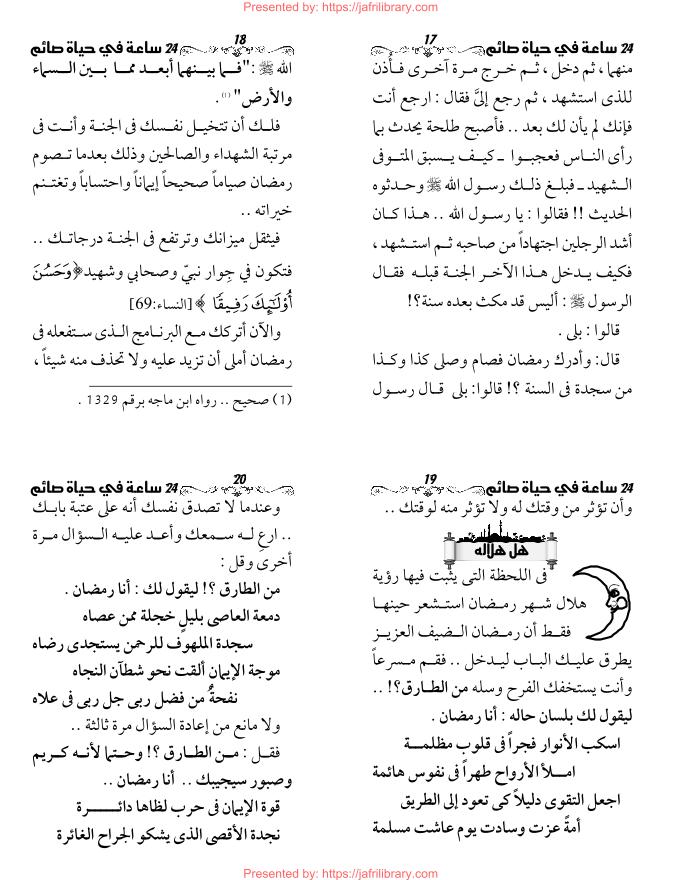 Presented by: https://jafrilibrary.com
24 ساعة في حياة صائم
17
منهما ، ثم دخل ، ثم خرج مرة آخرى فأذن
للذى استشهد ، ثم رجع إلىَّ فقال : ارجع أنت
فإنك لم يأن لك بعد .. فأصبح طلحة يحدث بما
رأى الناس فعجبوا ـ كيف يسبق المتوفى
الشهيد ـ فبلغ ذلك رسول الله ﷺ وحدثوه
الحديث !! فقالوا : يا رسول الله .. هذا كان
أشد الرجلين اجتهاداً من صاحبه ثم استشهد ،
فكيف يدخل هذا الآخر الجنة قبله فقال
الرسول ﷺ : أليس قد مكث بعده سنة؟!
قالوا : بلى .
قال: وأدرك رمضان فصام وصلى كذا وكذا
من سجدة فى السنة ؟! قالوا: بلى قال رسول
24 ساعة في حياة صائم
18
الله ﷺ :"فما بينهما أبعد مما بين السماء
والأرض" (١) .
فلك أن تتخيل نفسك فى الجنة وأنت فى
مرتبة الشهداء والصالحين وذلك بعدما تصوم
رمضان صياماً صحيحاً إيماناً واحتساباً وتغتنم
خيراته ..
فيثقل ميزانك وترتفع فى الجنة درجاتك ..
فتكون في جِوار نبيّ وصحابي وشهيد﴿وَحَسُنَ
أُوْلَـٰٓئِكَ رَفِيقًا ﴾[النساء:69]
والآن أتركك مع البرنامج الذى ستفعله فى
رمضان أملى أن تزيد عليه ولا تحذف منه شيئاً ،
(1) صحيح .. رواه ابن ماجه برقم 1329 .
24 ساعة في حياة صائم
19
وأن تؤثر من وقتك له ولا تؤثر منه لوقتك ..
هل هلاله
فى اللحظة التى يثبت فيها رؤية
هلال شهر رمضان استشعر حينها
فقط أن رمضان الضيف العزيز
يطرق عليك الباب ليدخل .. فقم مسرعاً
وأنت يستخفك الفرح وسله من الطارق؟! ..
ليقول لك بلسان حاله : أنا رمضان .
اسكب الأنوار فجراً فى قلوب مظلمة
املأ الأرواح طهراً فى نفوس هائمة
اجعل التقوى دليلاً كى تعود إلى الطريق
أمةً عزت وسادت يوم عاشت مسلمة
24 ساعة في حياة صائم
20
وعندما لا تصدق نفسك أنه على عتبة بابك
.. ارعِ له سمعك وأعد عليه السؤال مرة
أخرى وقل :
من الطارق ؟! ليقول لك : أنا رمضان .
دمعة العاصى بليلٍ خجلة ممن عصاه
سجدة الملهوف للرحمن يستجدى رضاه
موجة الإيمان ألقت نحو شطآن النجاه
نفحةٌ من فضل ربى جل ربى فى علاه
ولا مانع من إعادة السؤال مرة ثالثة ..
فقل : من الطارق ؟! وحتما لأنه كريم
وصبور سيجيبك .. أنا رمضان ..
قوة الإيمان فى حرب لظاها دائرة
نجدة الأقصى الذى يشكو الجراح الغائرة
Presented by: https://jafrilibrary.com